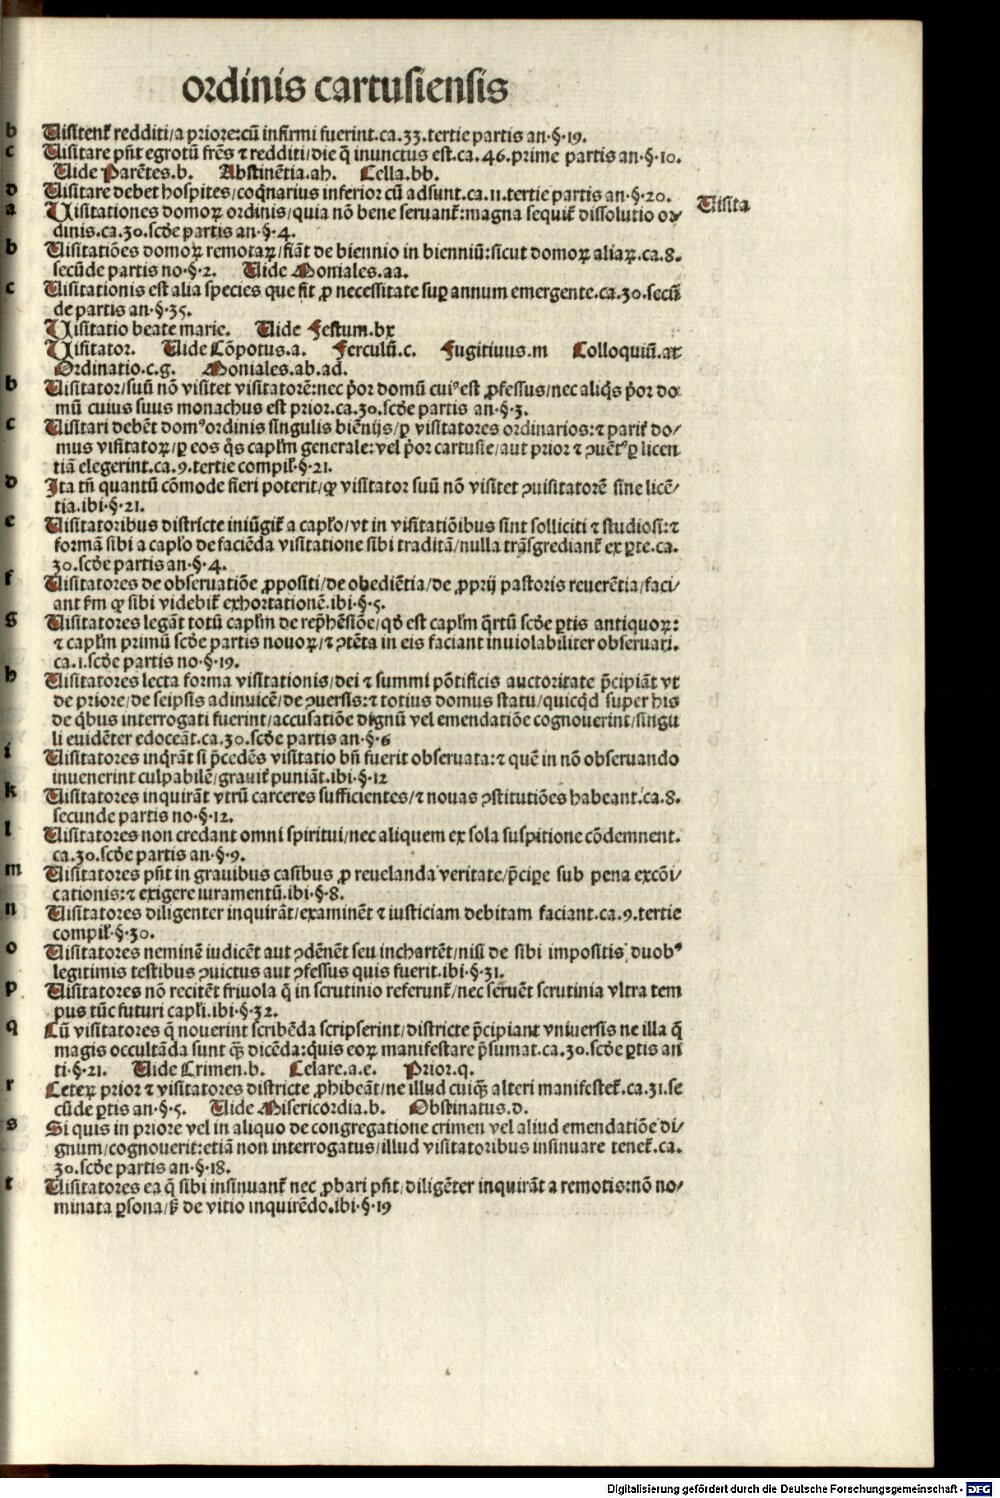 ordinis cartusiensis
b Uisitentᷣ redditi/a priore:cū infirmi fuerint.ca.33.tertie partis an·§·19.
c Uisitare pn̄t egrotū frēs ⁊ redditi/die q̄ inunctus est.ca.46.prime partis an·§·10.
Uide Parētes.b. Abstinētia.ah. Cella.bb.
d Uisitare debet hospites/coqnarius inferior cū adsunt.ca.11.tertie partis an·§·20.
Uisita
a Uisitationes domoꝝ ordinis/quia nō bene seruantᷣ:magna sequitᷣ dissolutio or/
dinis.ca.30.scd̄e partis an·§·4.
b Uisitatiōes domoꝝ remotaꝝ/fiāt de biennio in bienniū:sicut domoꝝ aliaꝝ.ca.8.
secūde partis no·§·2. Uide Moniales.aa.
c Uisitationis est alia species que fit ꝓ necessitate suꝑ annum emergente.ca.30.secū
de partis an·§·35.
Uisitatio beate marie. Uide Festum.bx
Uisitator. Uide Cōpotus.a. Ferculū.c. Fugitiuus.m Colloquiū.ax
Ordinatio.c.g. Moniales.ab.ad.
b Uisitator/suū nō visitet visitatorē:nec p̄or domū cuiꝰ est ꝓfessus/nec aliqs p̄or do
mū cuius suus monachus est prior.ca.30.scd̄e partis an·§·3.
c Uisitari debēt domꝰ ordinis singulis biēnijs/ꝑ visitatores ordinarios:⁊ paritᷣ do/
mus visitatoꝝ/ꝑ eos q̄s capl̄m generale:vel p̄or cartusie/aut prior ⁊ ꝯuētꝰ ꝑ licen
tiā elegerint.ca.9.tertie compil̄·§·21.
d Ita tn̄ quantū cōmode fieri poterit/ꝙ visitator suū nō visitet ꝯuisitatorē sine licē/
tia.ibi·§·21.
e Uisitatoribus districte iniūgitᷣ a capl̄o/vt in visitatiōibus sint solliciti ⁊ studiosi:⁊
formā sibi a capl̄o de faciēda visitatione sibi traditā/nulla trāsgrediantᷣ ex ꝑte.ca.
30.scd̄e partis an·§·4.
f Uisitatores de obseruatiōe ꝓpositi/de obediētia/de ꝓprij pastoris reuerētia/faci/
ant fm ꝙ sibi videbitᷣ exhortationē.ibi·§·5.
g Uisitatores legāt totū capl̄m de rep̄hēsiōe/qd̄ est capl̄m q̄rtū scd̄e ꝑtis antiquoꝝ:
⁊ capl̄m primū scd̄e partis nouoꝝ/⁊ ꝯtēta in eis faciant inuiolabiliter obseruari.
ca.1.scd̄e partis no·§·19.
h Uisitatores lecta forma visitationis/dei ⁊ summi pōtificis auctoritate p̄cipiāt vt
de priore/de seipsis adinuicē/de ꝯuersis:⁊ totius domus statu/quicqd super his
de qbus interrogati fuerint/accusatiōe dignū vel emendatiōe cognouerint/singu
li euidēter edoceāt.ca.30.scd̄e partis an·§·6
i Uisitatores inqrāt si p̄cedēs visitatio bn̄ fuerit obseruata:⁊ quē in nō obseruando
inuenerint culpabilē/grauitᷣ puniāt.ibi·§·12
k Uisitatores inquirāt vtrū carceres sufficientes/⁊ nouas ꝯstitutiōes habeant.ca.8.
secunde partis no·§·12.
l Uisitatores non credant omni spiritui/nec aliquem ex sola suspitione cōdemnent.
ca.30.scd̄e partis an·§·9.
m Uisitatores pn̄t in grauibus casibus ꝓ reuelanda veritate/p̄cipe sub pena excōi/
cationis:⁊ exigere iuramentū.ibi·§·8.
n Uisitatores diligenter inquirāt/examinēt ⁊ iusticiam debitam faciant.ca.9.tertie
compil̄·§·30.
o Uisitatores neminē iudicēt aut ꝯdēnēt seu inchartēt/nisi de sibi impositis duobꝰ
legitimis testibus ꝯuictus aut ꝯfessus quis fuerit.ibi·§·31.
p Uisitatores nō recitēt friuola q̄ in scrutinio referuntᷣ/nec seruēt scrutinia vltra tem
pus tūc futuri capl̄i.ibi·§·32.
q Cū visitatores q̄ nouerint scribēda scripserint/districte p̄cipiant vniuersis ne illa q̄
magis occultāda sunt qꝫ dicēda:quis eoꝝ manifestare p̄sumat.ca.30.scd̄e ꝑtis an
ti·§·21. Uide Crimen.b. Celare.a.e. Prior.q.
r Ceteꝝ prior ⁊ visitatores districte ꝓhibeāt/ne illud cuiqꝫ alteri manifestetᷣ.ca.31.se
cūde ꝑtis an·§·5. Uide Misericordia.b. Obstinatus.d.
s Si quis in priore vel in aliquo de congregatione crimen vel aliud emendatiōe di/
gnum/cognouerit:etiā non interrogatus/illud visitatoribus insinuare tenetᷣ.ca.
30.scd̄e partis an·§·18.
t Uisitatores ea q̄ sibi insinuantᷣ nec ꝓbari pn̄t/diligēter inquirāt a remotis:nō no/
minata ꝑsona/sꝫ de vitio inquirēdo.ibi·§·19
Digitalisierung gefördert durch die Deutsche Forschungsgemeinschaft - DFG